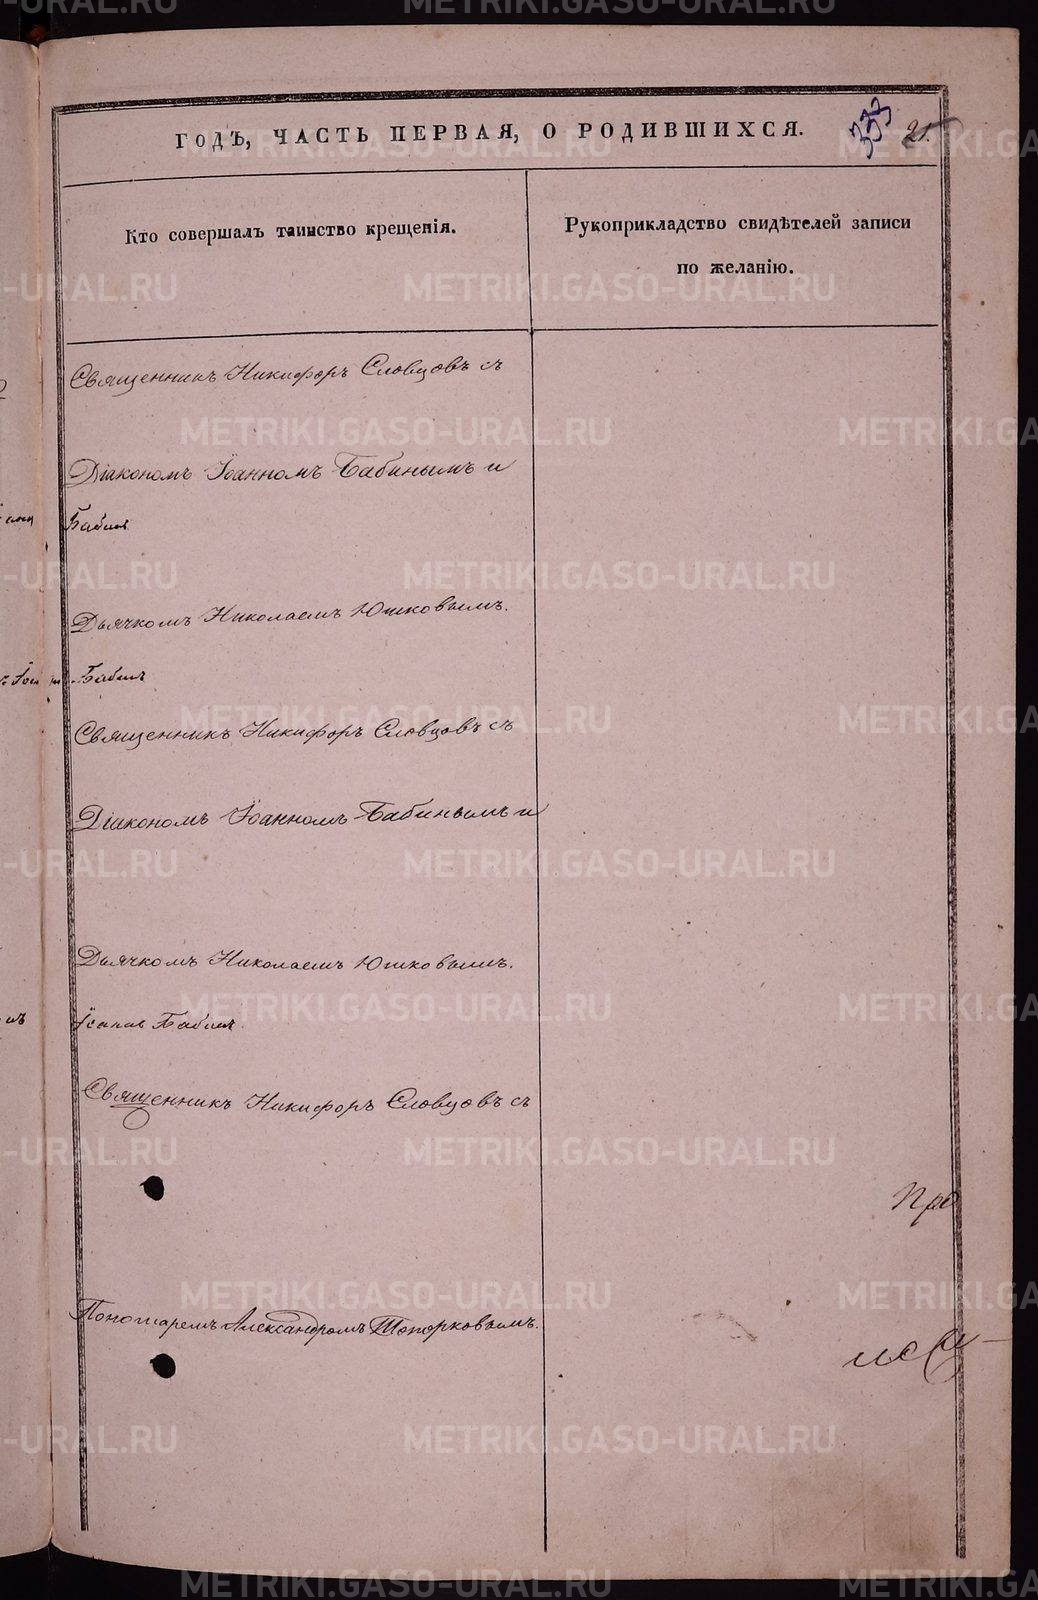 ГОДЪ, ЧАСТЬ ПЕРВАЯ, О РОДИВШИХСЯ.
Кто совершалъ таинство крещенія.
Рукоприкладство свидѣтелей записи
по желанію.
Священникъ Никифоръ Словцовъ съ
Діакономъ Іоанномъ Бабинымъ и
Бабинъ
Дьячкомъ Николаемъ Юшковымъ.
Бабинъ
Священникъ Никифоръ Словцовъ съ
Діакономъ Іоанномъ Бабинымъ и
Дьячкомъ Николаемъ Юшковымъ.
Іоаннъ Бабинъ
Священникъ Никифоръ Словцовъ съ
Пономаремъ Александромъ Топорковымъ.
METRIKI.GASO-URAL.RU